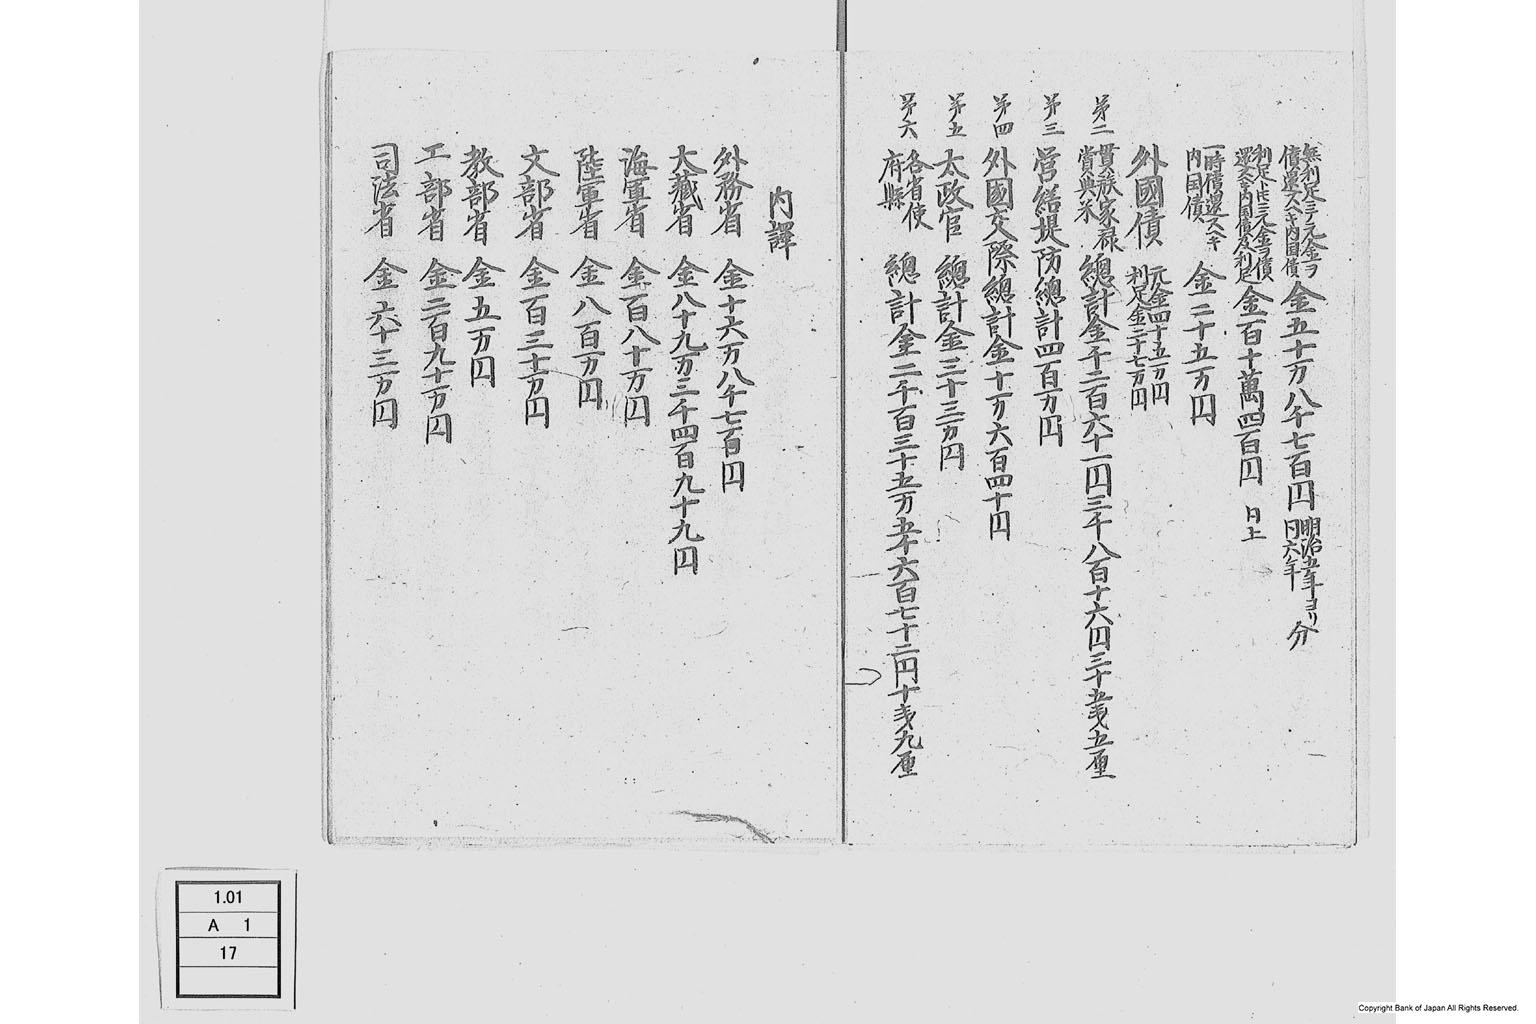 無利足ニテ元金ヲ
償還スヘキ内国債
金五十万八千七百円
明治五年ヨリ
同六年
分
利足トモニ元金ヲ償
還スヘキ内国債及利足
金百十萬四百円 同上
一時償還スヘキ
内国債
金二十五万円
外國債
元金四十五万円
利足金二十七万円
第二
貫族家禄
賞典米
總計金千二百六十一円三千八百十六円三十五戔五厘
第三 営繕堤防總計四百万円
第四 外國交際總計金十万六百四十円
第五 太政官 總計金三十三万円
第六
各省使
府縣
總計金二千百三十五万五千六百七十二円十戔九厘
内譯
外務省 金十六万八千七百円
大藏省 金八十九万三千四百九十九円
海軍省 金百八十万円
陸軍省 金八百万円
文部省 金百三十万円
教部省 金五万円
工部省 金二百九十万円
司法省 金六十三万円
1.01
A 1
17
Copyright Bank of Japan All Rights Reserved.